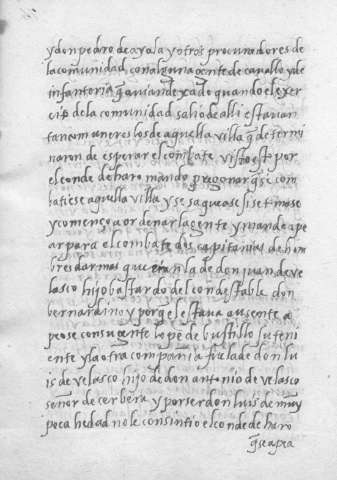 y don pedro de ayala y otros procuradores de
la comunidad con alguna gente de cauallo y de
infanteria q̃ auian dexado quando el exer
cito de la comunidad salio de alli estauan
tan animan eres los de aquella villa q̃ determi
naron de esperar el combate visto esto por
el conde de haro mando pregonar q̃ se com
batiese aquella villa y se saquease si se tomase
y començo a ordenar la gente y mando ape
ar para el combate dos capitanias de hom
bres darmas que eran la de don juan de ve
lasco hijo bastardo del condestable don
bernardino y porq̃ el estaua ausente a
peose con su gente lope de bustillo su teni
ente y la otra compania fue la de don lu
is de velasco hijo de don antonio de velasco
señor de cerbera y por ser don luis de muy
poca hedad no le consintio el conde de haro
q̃ se apea